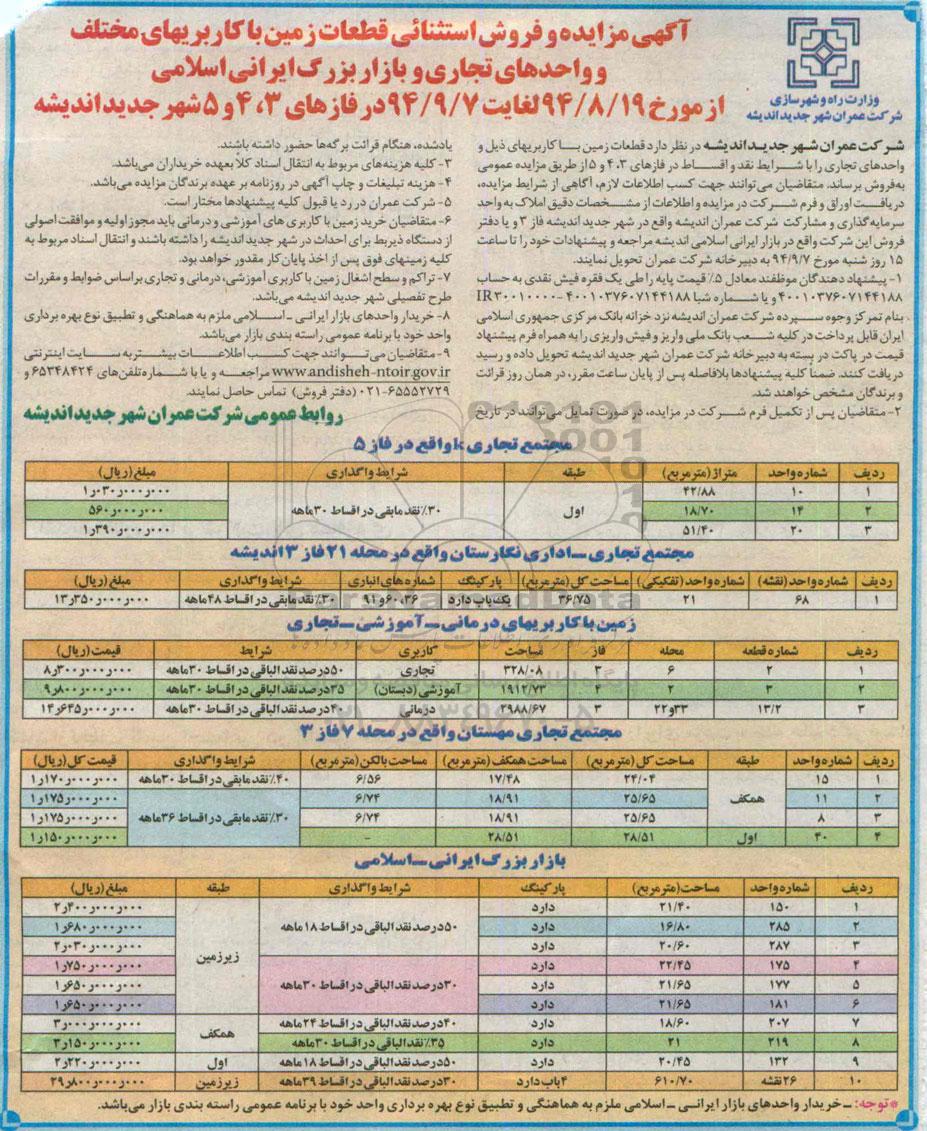 آگهی مزایده و فروش استثنائی قطعات زمین با کاربریهای مختلف
و واحدهای تجاری و بازار بزرگ ایرانی اسلامی
از مورخ ۹۴/۸/۱۹ لغایت ۹۴/۹/۷ در فازهای ۳، ۴ و ۵ شهر جدید اندیشه
وزارت راه و شهرسازی
شرکت عمران شهر جدید اندیشه
شرکت عمران شهر جدید اندیشه در نظر دارد قطعات زمین با کاربریهای ذیل و
واحدهای تجاری را با شرایط نقد و اقساط در فازهای ۳، ۴ و ۵ از طریق مزایده عمومی
به‌فروش برساند. متقاضیان می‌توانند جهت کسب اطلاعات لازم، آگاهی از شرایط مزایده،
دریافت اوراق و فرم شرکت در مزایده و اطلاعات از مشخصات دقیق املاک به واحد
سرمایه‌گذاری و مشارکت شرکت عمران اندیشه واقع در شهر جدید اندیشه فاز ۳ و یا دفتر
فروش این شرکت واقع در بازار ایرانی اسلامی اندیشه مراجعه و پیشنهادات خود را تا ساعت
۱۵ روز شنبه مورخ ۹۴/۹/۷ به دبیرخانه شرکت عمران تحویل نمایند.
۱- پیشنهاد دهندگان موظفند معادل ۵٪ قیمت پایه را طی یک فقره فیش نقدی به حساب
۴۰۰۱۰۳۷۶۰۷۱۴۴۱۸۸ و یا شماره شبا IR۳۰۰۱۰۰۰۰-۴۰۰۱۰۳۷۶۰۷۱۴۴۱۸۸
بنام تمرکز وجوه سپرده شرکت عمران اندیشه نزد خزانه بانک مرکزی جمهوری اسلامی
ایران قابل پرداخت در کلیه شعب بانک ملی واریز و فیش واریزی را به همراه فرم پیشنهاد
قیمت در پاکت در بسته به دبیرخانه شرکت عمران شهر جدید اندیشه تحویل داده و رسید
دریافت کنند. ضمناً کلیه پیشنهادها بلافاصله پس از پایان ساعت مقرر، در همان روز قرائت
و برندگان مشخص خواهند شد.
۲- متقاضیان پس از تکمیل فرم شرکت در مزایده، در صورت تمایل می‌توانند در تاریخ
یادشده، هنگام قرائت برگه‌ها حضور داشته باشند.
۳- کلیه هزینه‌های مربوط به انتقال اسناد کلاً بعهده خریداران می‌باشد.
۴- هزینه تبلیغات و چاپ آگهی در روزنامه بر عهده برندگان مزایده می‌باشد.
۵- شرکت عمران در رد یا قبول کلیه پیشنهادها مختار است.
۶- متقاضیان خرید زمین با کاربری های آموزشی و درمانی باید مجوز اولیه و موافقت اصولی
از دستگاه ذیربط برای احداث در شهر جدید اندیشه را داشته باشند و انتقال اسناد مربوط به
کلیه زمینهای فوق پس از اخذ پایان کار مقدور خواهد بود.
۷- تراکم و سطح اشغال زمین با کاربری آموزشی، درمانی و تجاری براساس ضوابط و مقررات
طرح تفصیلی شهر جدید اندیشه می‌باشد.
۸- خریدار واحدهای بازار ایرانی ـ اسلامی ملزم به هماهنگی و تطبیق نوع بهره برداری
واحد خود با برنامه عمومی راسته بندی بازار می‌باشد.
۹- متقاضیان می‌توانند جهت کسب اطلاعات بیشتر به سایت اینترنتی
www.andisheh-ntoir.gov.ir مراجعه و یا با شماره تلفن‌های ۶۵۳۴۸۴۲۴ و
۰۲۱-۶۵۵۵۲۷۲۹ (دفتر فروش) تماس حاصل نمایند.
روابط عمومی شرکت عمران شهر جدید اندیشه
مجتمع تجاری k واقع در فاز ۵
ردیف شماره واحد متراژ (مترمربع) طبقه شرایط واگذاری مبلغ (ریال)
۱ ۱۰ ۴۲/۸۸ ۱ر۰۳۰ر۰۰۰ر۰۰۰
۲ ۱۴ ۱۸/۷۰ اول ۳۰٪ نقد مابقی در اقساط ۳۰ ماهه ۵۶۰ر۰۰۰ر۰۰۰
۳ ۲۰ ۵۱/۴۰ ۱ر۳۹۰ر۰۰۰ر۰۰۰
مجتمع تجاری ـ اداری نگارستان واقع در محله ۲۱ فاز ۳ اندیشه
ردیف شماره واحد (نقشه) شماره واحد (تفکیکی) مساحت کل (مترمربع) پارکینگ شماره های انباری شرایط واگذاری مبلغ (ریال)
۱ ۶۸ ۲۱ ۳۶/۷۵ یک باب دارد ۳۶، ۶۰ و ۹۱ ۳۰٪ نقد مابقی در اقساط ۴۸ ماهه ۱۳ر۳۵۰ر۰۰۰ر۰۰۰
زمین با کاربریهای درمانی ـ آموزشی ـ تجاری
ردیف شماره قطعه محله فاز مساحت کاربری شرایط قیمت (ریال)
۱ ۲ ۶ ۳ ۳۲۸/۰۸ تجاری ۵۰ درصد نقد الباقی در اقساط ۳۰ ماهه ۸ر۳۰۰ر۰۰۰ر۰۰۰
۲ ۳ ۲ ۴ ۱۹۱۲/۷۳ آموزشی (دبستان) ۳۵ درصد نقد الباقی در اقساط ۳۰ ماهه ۹ر۸۰۰ر۰۰۰ر۰۰۰
۳ ۱۳/۲ ۳۳ و ۲۲ ۳ ۲۹۸۸/۶۷ درمانی ۴۰ درصد نقد الباقی در اقساط ۳۰ ماهه ۱۴ر۶۴۵ر۰۰۰ر۰۰۰
مجتمع تجاری مهستان واقع در محله ۷ فاز ۳
ردیف شماره واحد طبقه مساحت کل (مترمربع) مساحت همکف (مترمربع) مساحت بالکن (مترمربع) شرایط واگذاری قیمت کل (ریال)
۱ ۱۵ ۲۴/۰۴ ۱۷/۴۸ ۶/۵۶ ۴۰٪ نقد مابقی در اقساط ۳۰ ماهه ۱ر۱۷۰ر۰۰۰ر۰۰۰
۲ ۱۱ همکف ۲۵/۶۵ ۱۸/۹۱ ۶/۷۴ ۱ر۱۷۵ر۰۰۰ر۰۰۰
۳ ۸ ۲۵/۶۵ ۱۸/۹۱ ۶/۷۴ ۳۰٪ نقد مابقی در اقساط ۳۶ ماهه ۱ر۱۷۵ر۰۰۰ر۰۰۰
۴ ۴۰ اول ۲۸/۵۱ ۲۸/۵۱ - ۱ر۱۵۰ر۰۰۰ر۰۰۰
بازار بزرگ ایرانی ـ اسلامی
ردیف شماره واحد مساحت (مترمربع) پارکینگ شرایط واگذاری طبقه مبلغ (ریال)
۱ ۱۵۰ ۲۱/۴۰ دارد ۲ر۴۰۰ر۰۰۰ر۰۰۰
۲ ۲۸۵ ۱۶/۸۰ دارد ۵۰ درصد نقد الباقی در اقساط ۱۸ ماهه ۱ر۶۸۰ر۰۰۰ر۰۰۰
۳ ۲۸۷ ۲۰/۶۰ دارد ۲ر۰۳۰ر۰۰۰ر۰۰۰
۴ ۱۷۵ ۲۲/۴۵ دارد زیرزمین ۱ر۷۵۰ر۰۰۰ر۰۰۰
۵ ۱۷۷ ۲۱/۶۵ دارد ۳۰ درصد نقد الباقی در اقساط ۳۰ ماهه ۱ر۶۵۰ر۰۰۰ر۰۰۰
۶ ۱۸۱ ۲۱/۶۵ دارد ۱ر۶۵۰ر۰۰۰ر۰۰۰
۷ ۲۰۷ ۱۸/۶۰ دارد ۴۰ درصد نقد الباقی در اقساط ۲۴ ماهه همکف ۳ر۰۰۰ر۰۰۰ر۰۰۰
۸ ۲۱۹ ۲۱ دارد ۳۵٪ نقد الباقی در اقساط ۳۰ ماهه ۳ر۱۵۰ر۰۰۰ر۰۰۰
۹ ۱۳۲ ۲۰/۴۵ دارد ۵۰ درصد نقد الباقی در اقساط ۱۸ ماهه اول ۲ر۲۲۰ر۰۰۰ر۰۰۰
۱۰ ۲۶ نقشه ۶۱۰/۷۰ ۴ باب دارد ۳۰ درصد نقد الباقی در اقساط ۳۹ ماهه زیرزمین ۲۹ر۸۰۰ر۰۰۰ر۰۰۰
*توجه: ـ خریدار واحدهای بازار ایرانی ـ اسلامی ملزم به هماهنگی و تطبیق نوع بهره برداری واحد خود با برنامه عمومی راسته بندی بازار می‌باشد.